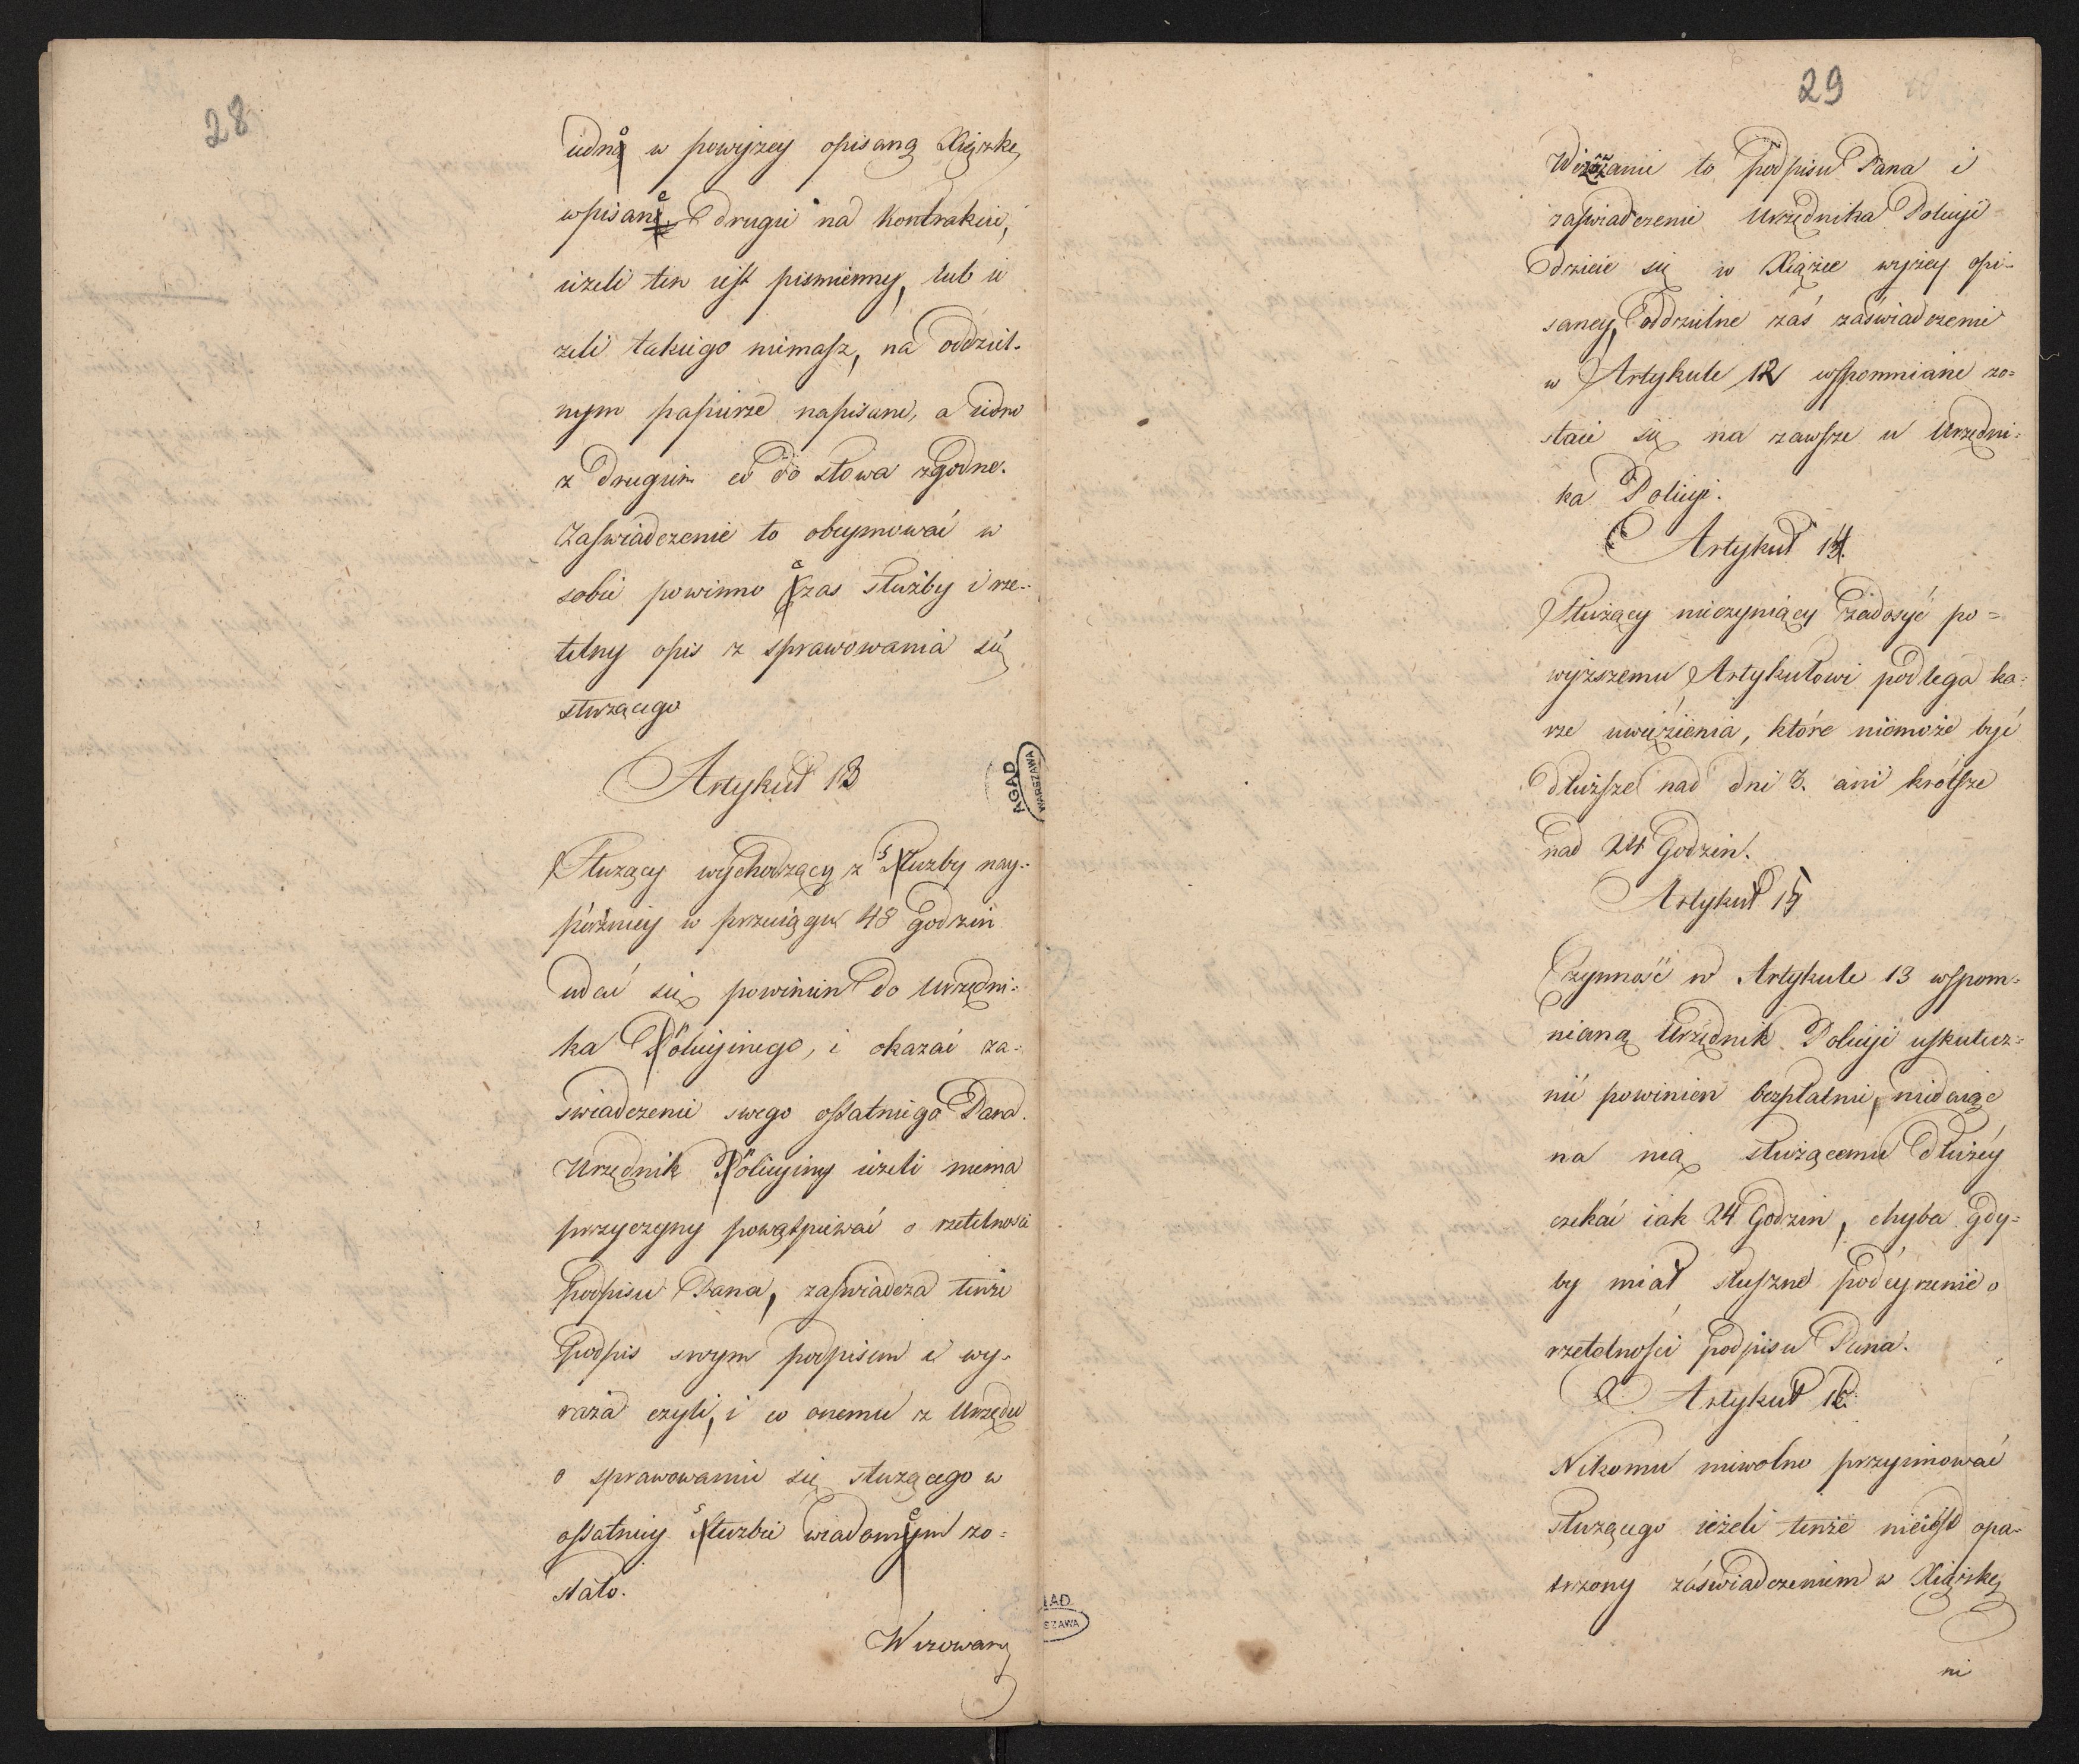 28
iedno w powyzey opisaną Xiązkę
wpisane drugie na Kontrakcie,
ieżeli ten iest pismienny, lub ie
zeli takiego niemasz, na oddziel-
nym papierze napisane, a iedno
z drugim co do słowa zgodne.
Zaswiadczenie to obeymować w
sobie powinno czas służby i rze-
telny opis z sprawowania się
służącego
Artykuł 13
Służący wychodzący z służby nay-
póżniey w przeciągu 48 godzin
udać się powinien do Urzędni-
ka Policyinego, i okazać za-
swiadczenie swego ostatniego Pana.
Urzędnik Policyiny ieżeli niema
przyczyny powątpiewać o rzetelnosci
podpisu Pana, zaswiadcza tenże
podpis swym podpisem i wy-
raża czyli, i co onemu z Urzędu
o sprawowaniu się służącego w
ostatniey służbie wiadomem zo-
stało.
AGAD
WARSZAWA
29
to podpisu Pana i
zaswiadczenie Urzędnika Policyi
dzieie się w Xiążce wyżey opi-
saney, oddzielne zaś zaświadczenie
w Artykule 12 wspomniane zo-
staie się na zawsze u Urzędni-
ka Policyi.
Artykuł 14
Służący nieczyniący zadosyć po-
wyższemu Artykułowi podlega ka-
rze uwięzienia, które niemoże być
dłuższe nad dni 3. ani krótsze
nad 24 Godzin.
Artykuł 15
Czynność w Artykule 13 wspom-
nianą Urzędnik Policyi uskutecz-
nić powinien bezpłatnie, niedaiąc
na nią służącemu dłużéy
czekać iak 24 Godzin, chyba gdy-
by miał słuszne podeyrzenie o
rzetelności podpisu Pana.
Artykuł 16
Nikomu niewolno przyimować
służącego ieżeli tenże nieiest opa-
trzony zaświadczeniem w Xiążkę
ni